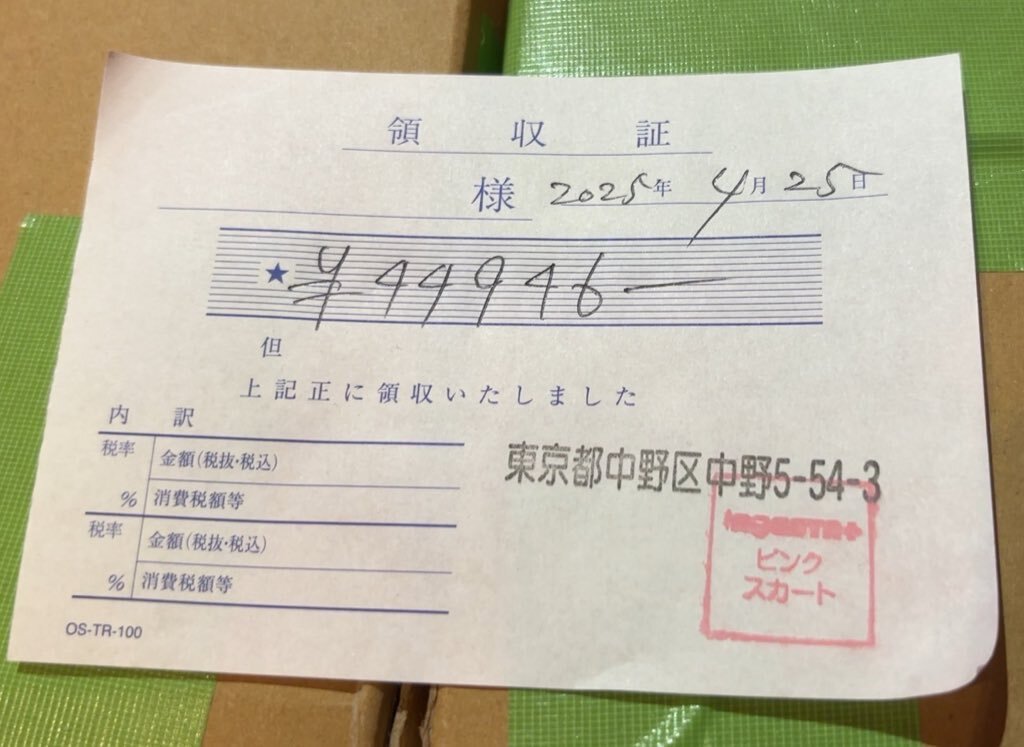 領収証
様 2025年 4月 25日
★ ¥44946—
但
上記正に領収いたしました
内訳
税率 金額(税抜・税込)
% 消費税額等
税率 金額(税抜・税込)
% 消費税額等
東京都中野区中野5-54-3
ピンク
スカート
OS-TR-100